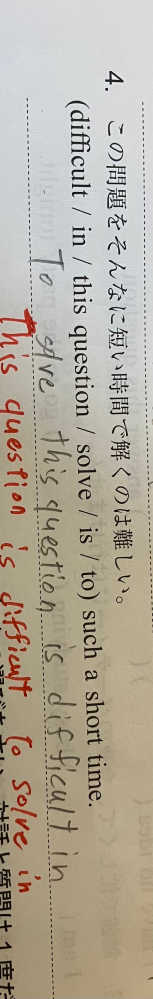 4. この問題をそんなに短い時間で解くのは難しい。
(difficult / in / this question / solve / is / to) such a short time.
To solve this question is difficult in
This question is difficult to solve in